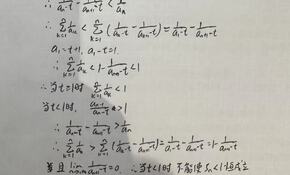 ∴ 1/(aₙ-t) - 1/(aₙ₊₁-t) < 1/aₙ
∴ Σₖ₌₁ⁿ 1/aₖ < Σₖ₌₁ⁿ (1/(aₖ-t) - 1/(aₖ₊₁-t)) = 1/(a₁-t) - 1/(aₙ₊₁-t)
a₁-t=1
∴ Σₖ₌₁ⁿ 1/aₖ < 1 - 1/(aₙ₊₁-t) < 1
∴ 当t=1时 Σₖ₌₁ⁿ 1/aₖ < 1
当t<1时, >1
∴ 1/(aₙ-t) - 1/(aₙ₊₁-t) > 1/aₙ
∴ Σₖ₌₁ⁿ 1/aₖ > Σₖ₌₁ⁿ (1/(aₖ-t) - 1/(aₖ₊₁-t)) = 1/(a₁-t) - 1/(aₙ₊₁-t) = 1 - 1/(aₙ₊₁-t)
且 lim 1/(aₙ₊₁-t) = 0 ∴ 当t<1时 不能使 Sₙ<1恒成立